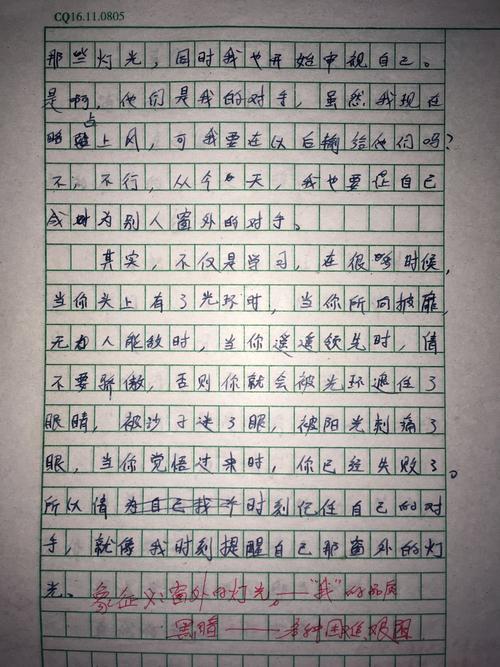 CQ16.11.0805
那些灯光，同时我也开始审视自己。
是啊，他们是我的对手，虽然我现在
占上风，可我要在以后输给他们吗？
不，不行，从今天，我也要让自己
成为别人窗外的对手。
其实，不仅是学习，在很多时候，
当你头上有了光环时，当你所向披靡，
无人能敌时，当你遥遥领先时，请
不要骄傲，否则你就会被光环遮住了
眼睛，被沙子迷了眼，被阳光刺痛了
眼，当你觉悟过来时，你已经失败了。
所以请时刻记住自己的对
手，就像我时刻提醒自己那窗外的灯
光。象征义：窗外的灯光——“我”的品质
黑暗——各种困难、艰困